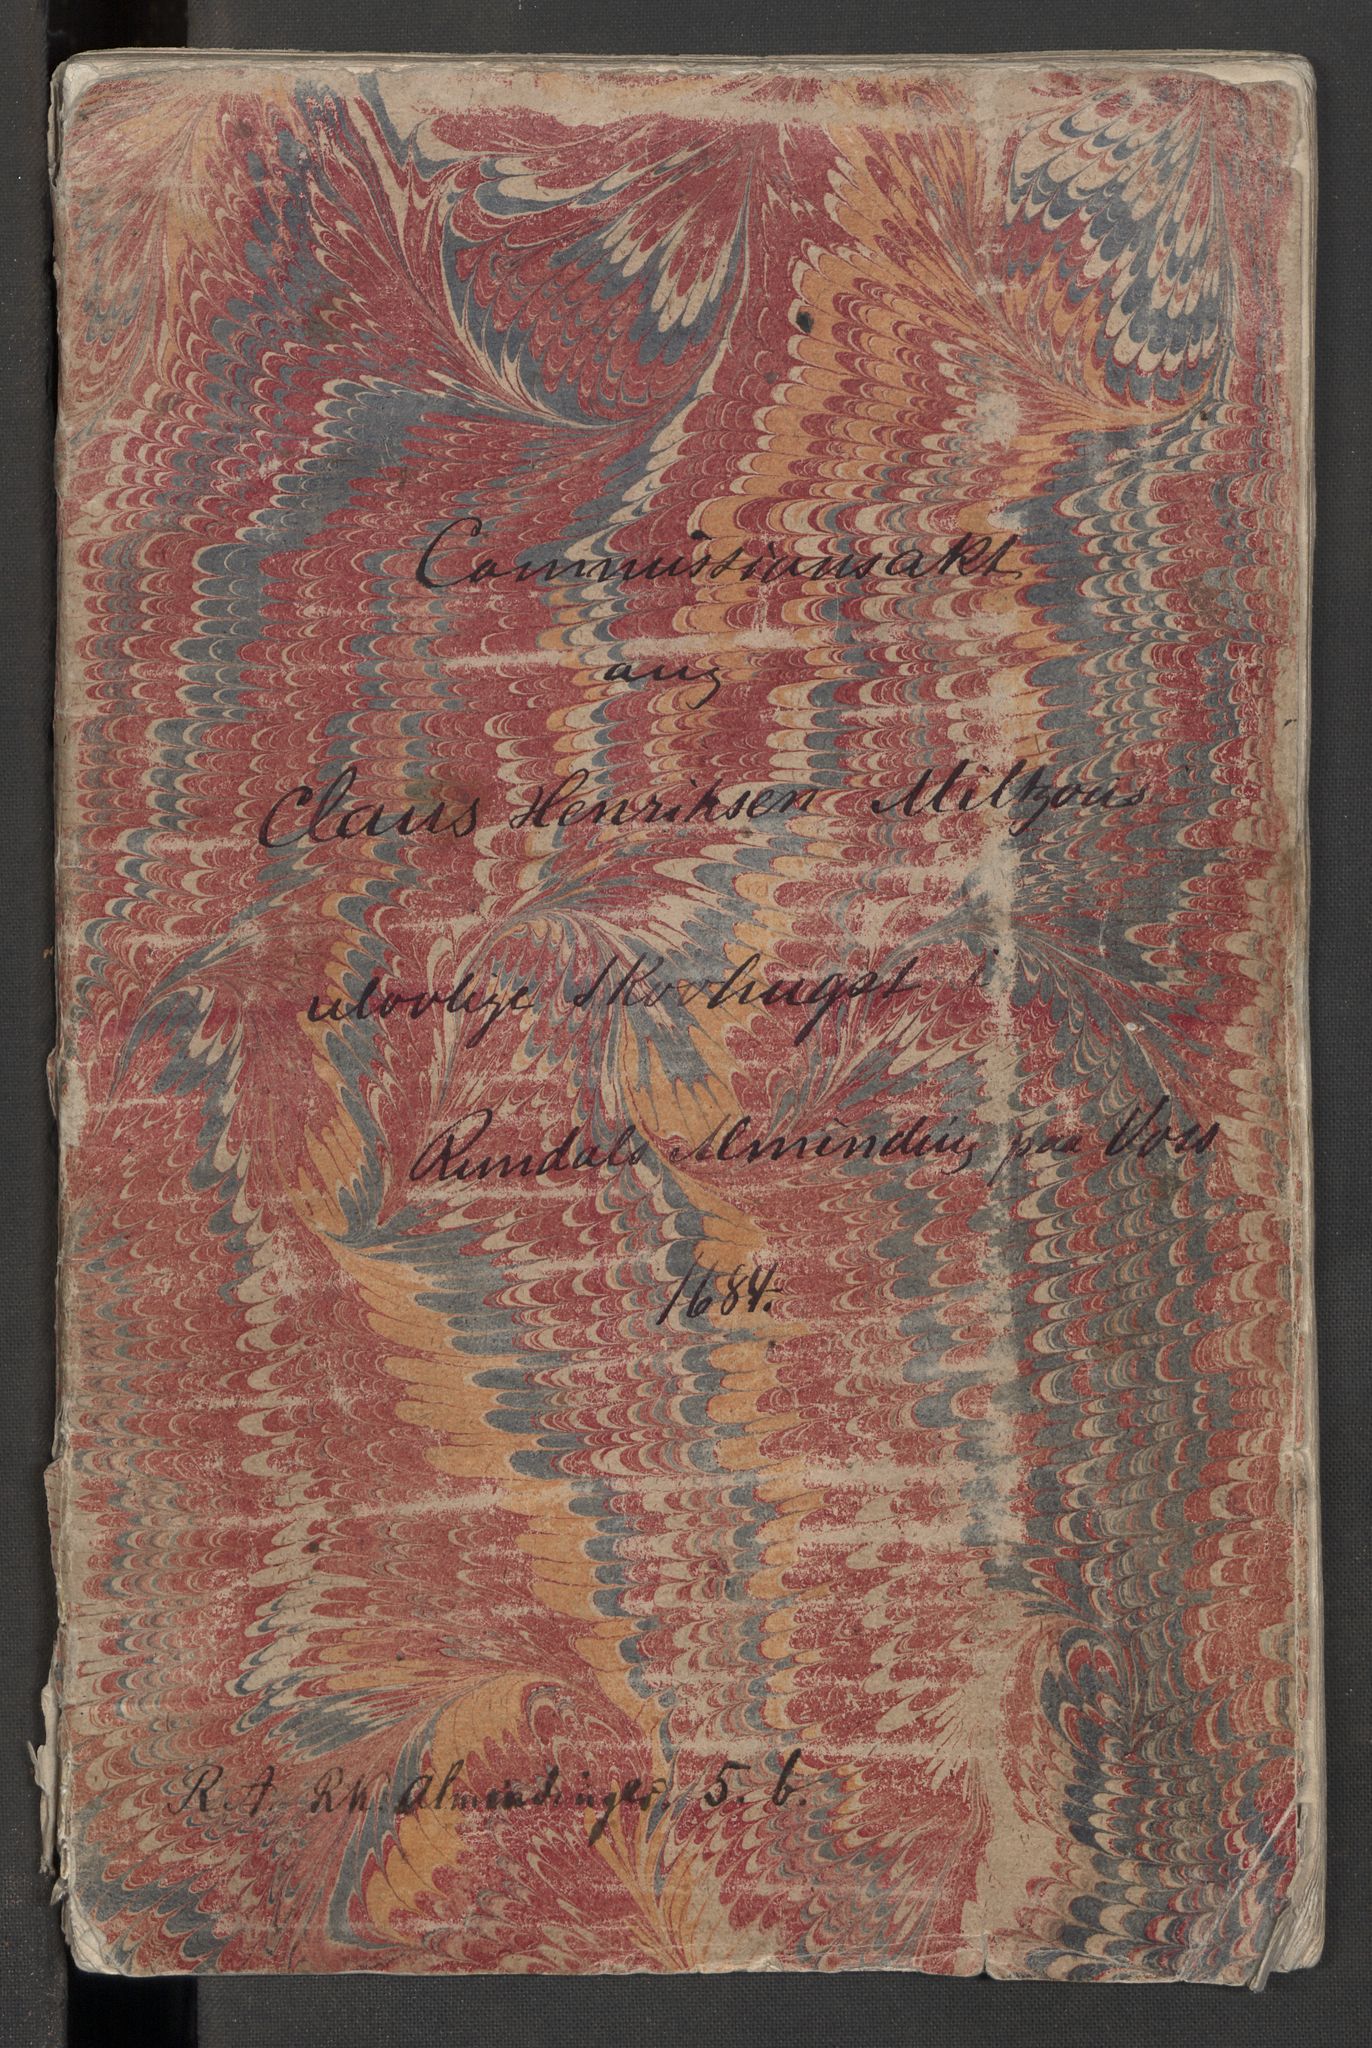 Commissionsakt
ang
Claus Henriksen Miltzovs
ulovlige Skovhugst i
Rundals Alminding paa Voss
1684.
R.A. Rk. Almindinger. 5. b.